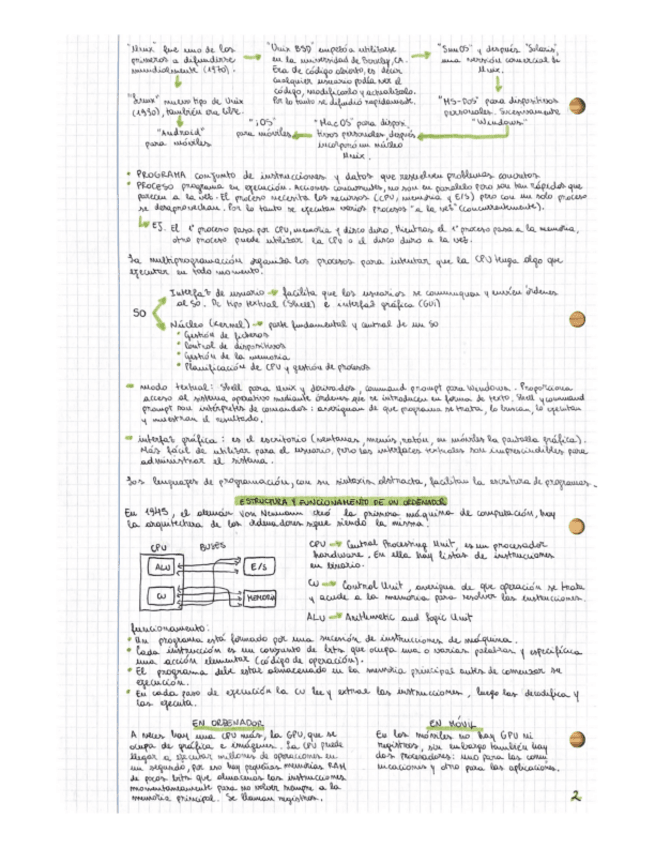 "Unix" fue uno de los
primeros a difundirse
mundialmente (1970).
"Unix BSD" empezó a utilizarse
en la universidad de Berkley, CA.
Era de código abierto, es decir
cualquier usuario podía ver el
código, modificarlo y actualizarlo.
Por lo tanto se difundió rapidamente.
"SunOS" y después "Solaris",
una versión comercial de
Unix.
"Linux" nuevo tipo de Unix
(1990), también era libre.
"Android"
para móviles
"iOS"
para móviles
"MacOS" para dispos.
tivos personales, después
incorporó un núcleo
Unix.
"MS-DOS" para dispositivos
personales. Sucesivamente
"Windows"
• PROGRAMA conjunto de instrucciones y datos que resuelven problemas concretos
• PROCESO programa en ejecución. Acciones concurrentes, no son en paralelo pero son tan rápidos que
parecen a la vez. El proceso necesita los recursos (CPU, memoria y E/S) pero con un solo proceso
se desaprovechan. Por lo tanto se ejecutan varios procesos "a la vez" (concurrentemente).
EJ. El 1º proceso pasa por CPU, memoria y disco duro. Mientras el 1º proceso pasa a la memoria,
otro proceso puede utilizar la CPU o el disco duro a la vez.
La multiprogramación organiza los procesos para intentar que la CPU tenga algo que
ejecutar en todo momento.
SO
Interfaz de usuario → facilita que los usuarios se comuniquen y envíen órdenes
al SO. De tipo textual (Shell) e interfaz gráfica (GUI)
Núcleo (Kernel) → parte fundamental y central de un SO
• Gestión de ficheros
• Control de dispositivos
• Gestión de la memoria
• Planificación de CPU y gestión de procesos
modo textual: Shell para Unix y derivados, command prompt para Windows. Proporciona
acceso al sistema operativo mediante órdenes que se introducen en forma de texto. Shell y command
prompt son intérpretes de comandos: averiguan de que programa se trata, lo buscan, lo ejecutan
y muestran el resultado.
interfaz gráfica: es el escritorio (ventanas, menús, ratón, en móviles la pantalla gráfica).
Más fácil de utilizar para el usuario, pero las interfaces textuales son imprescindibles para
administrar el sistema.
Los lenguajes de programación, con su sintaxis abstracta, facilitan la escritura de programas.
ESTRUCTURA Y FUNCIONAMENTO DE UN ORDENADOR
En 1945, el alemán Von Neumann creó la primera máquina de computación, hoy
la arquitectura de los ordenadores sigue siendo la misma.
CPU
BUSES
ALU
E/S
CU
MEMORIA
CPU → Central Processing Unit, es un procesador
hardware. En ella hay listas de instrucciones
en binario.
CU → Control Unit, averigua de que operación se trata
y acude a la memoria para resolver las instrucciones.
ALU → Arithmetic and Logic Unit
funcionamento:
• Un programa está formado por una sucesión de instrucciones de máquina.
• Cada instrucción es un conjunto de bits que ocupa una o varias palabras y especifica
una acción elementar (código de operación).
• El programa debe estar almacenado en la memoria principal antes de comenzar su
ejecución.
• En cada paso de ejecución la CU lee y extrae las instrucciones, luego las decodifica y
las ejecuta.
EN ORDENADOR
A veces hay una CPU más, la GPU, que se
ocupa de gráfica e imágenes. La CPU puede
llegar a ejecutar millones de operaciones en
un segundo, por eso hay pequeñas memorias RAM
de pocos bits que almacenan las instrucciones
momentaneamente para no volver siempre a la
memoria principal. Se llaman registros.
EN MÓVIL
En los móviles no hay GPU ni
registros, sin embargo también hay
dos procesadores: uno para las comu
nicaciones y otro para las aplicaciones.
2